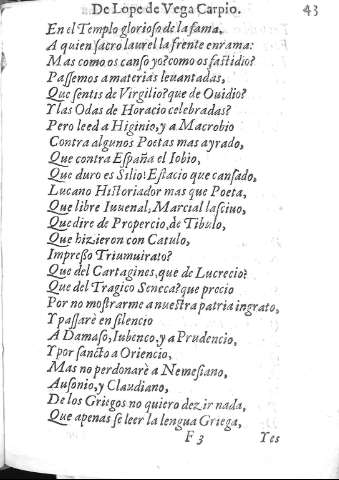 De Lope de Vega Carpio. 43
En el Templo glorioso de la fama,
A quien sacro laurel la frente enrama:
Mas como os canso yo? como os fastidio?
Passemos a materias leuantadas,
Que sentis de Virgilio? que de Ouidio?
Y las Odas de Horacio celebradas?
Pero leed a Higinio, y a Macrobio
Contra algunos Poetas mas ayrado,
Que contra España el Iobio,
Que duro es Silio! Estacio que cansado,
Lucano Historiador mas que Poeta,
Que libre Iuuenal, Marcial lasciuo,
Que dire de Propercio, de Tibulo,
Que hizieron con Catulo,
Impresso Triumuirato?
Que del Cartagines, que de Lucrecio?
Que del Tragico Seneca? que precio
Por no mostrarme a nuestra patria ingrato,
Y passarè en silencio
A Damaso, Iubenco, y a Prudencio,
Y por sancto a Oriencio,
Mas no perdonarè a Nemesiano,
Ausonio, y Claudiano,
De los Griegos no quiero dezir nada,
Que apenas se leer la lengua Griega,
F 3 Yes